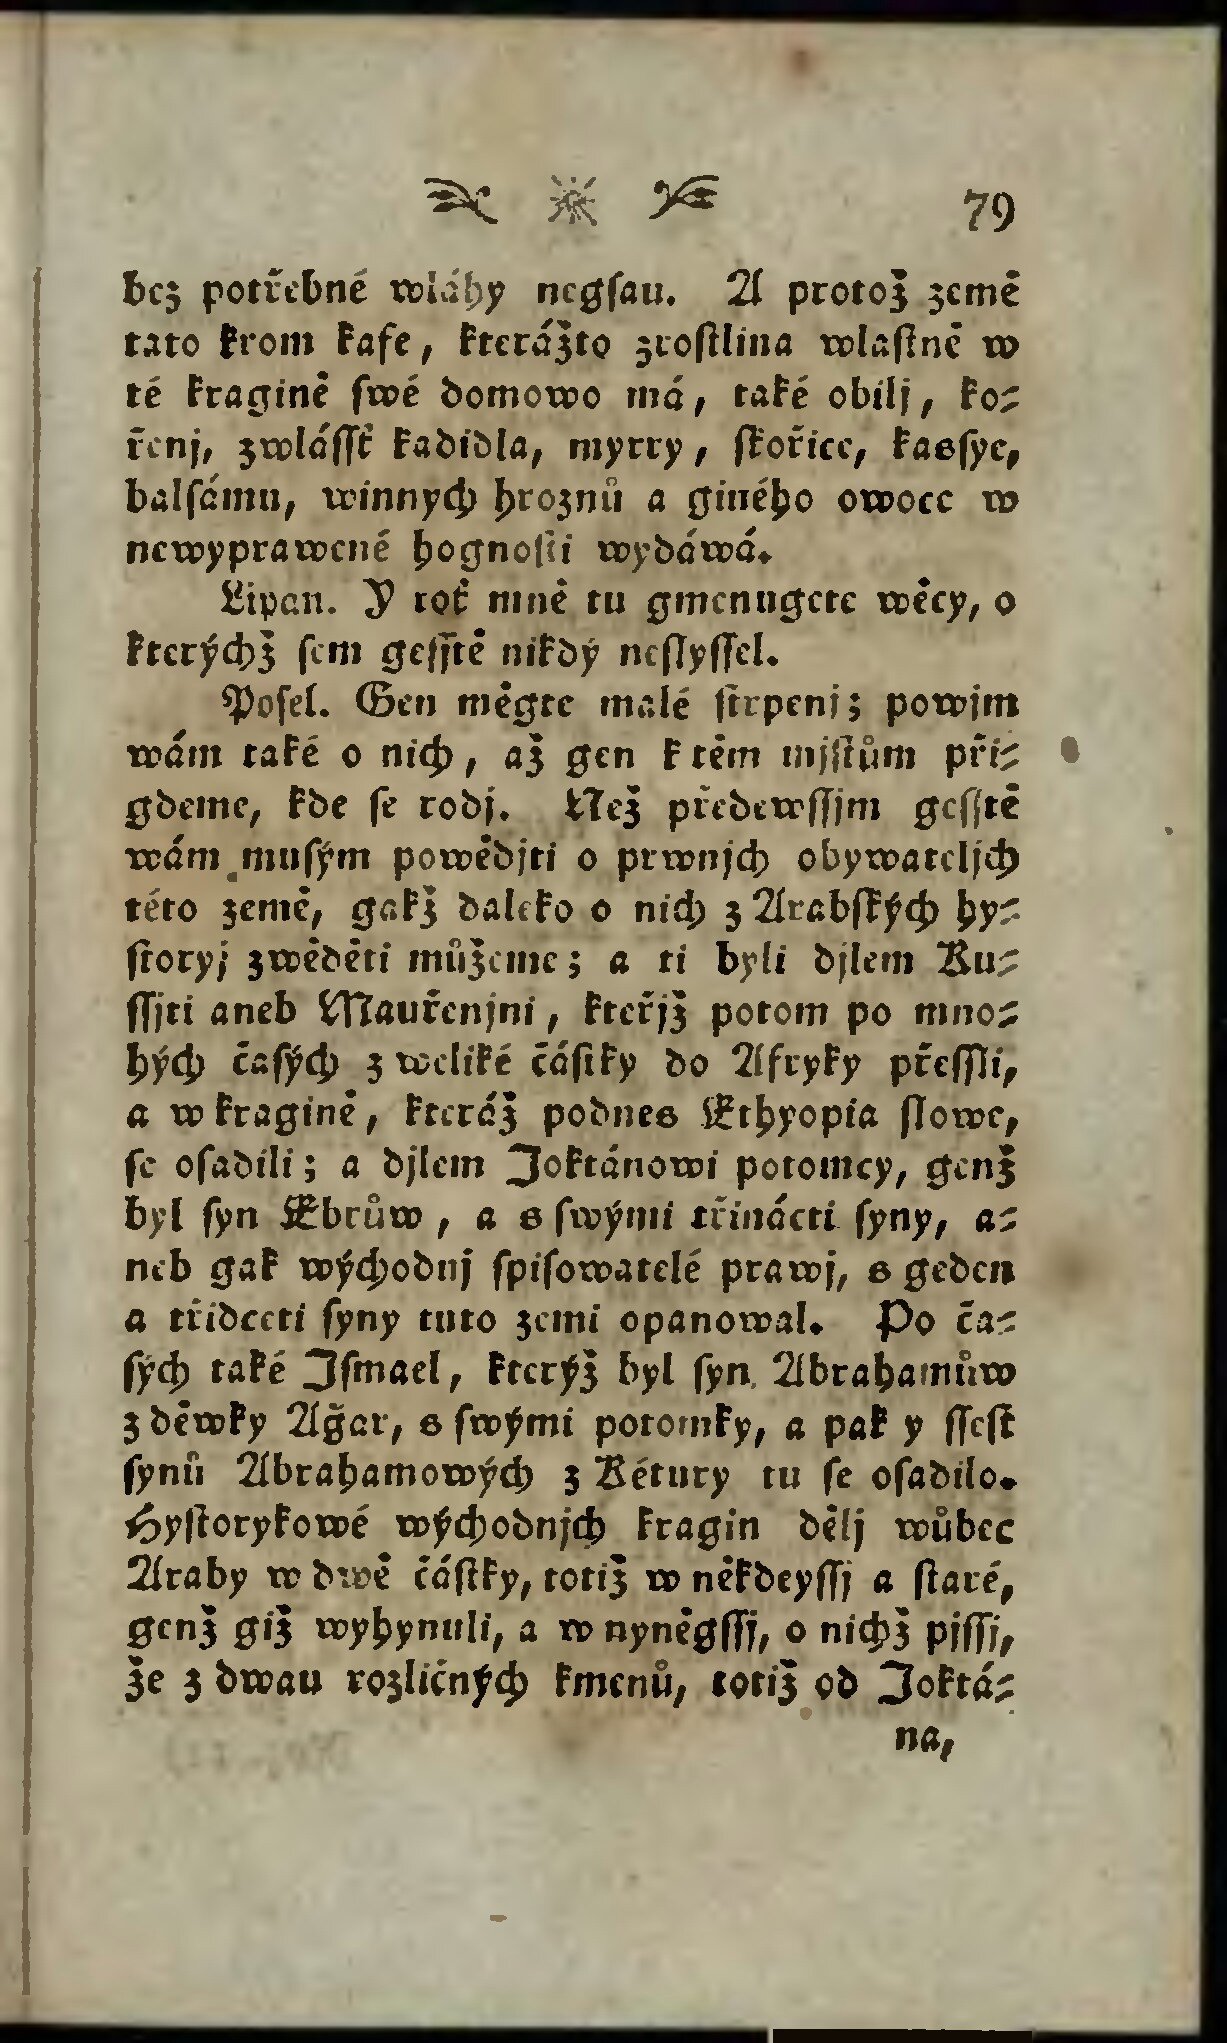 79
bez potřebné wláhy negſau. A protož země
tato krom kafe, kterážto zroſtlina wlaſtně w
té kragině ſwé domowo má, také obilj, ko⸗
řenj, zwláſſť kadidla, myrry, ſkořice, kasſye,
balſámu, winnych hroznů a giného owoce w
newyprawené hognoſti wydáwá.
Lipan. Y roť mně tu gmenugete wěcy, o
kterýchž ſem geſſtě nikdý neſlyſſel.
Poſel. Gen mégte malé ſtrpenj; powjm
wám také o nich, až gen k těm mjſtům při⸗
gdeme, kde ſe rodj. Než předewſſjm geſſtě
wám muſým powědjti o prwnjch obywateljch
této země, gakž daleko o nich z Arabſkých hy⸗
ſtoryj zwěděti můžeme; a ti byli djlem Ku⸗
ſſjti aneb Mauřenjni, kteřjž potom po mno⸗
hých čaſých z weliké čáſtky do Afryky přeſſli,
a w kragině, kteráž podnes Ethyopia ſlowe,
ſe oſadili; a djlem Joktánowi potomcy, genž
byl ſyn Ebrůw, a s ſwými třinácti ſyny, a⸗
neb gak wýchodnj ſpiſowatelé prawj, s geden
a třidceti ſyny tuto zemi opanowal. Po ča⸗
ſých také Jſmael, kterýž byl ſyn Abrahamůw
z děwky Aǧar, s ſwými potomky, a pak y ſſeſt
ſynů Abrahamowých z Kétury tu ſe oſadilo.
Hyſtorykowé wýchodnjch kragin dělj wůbec
Araby w dwě čáſtky, totiž w někdeyſſj a ſtaré,
genž giž wyhynuli, a w nyněgſſj, o nichž pjſſj,
že z dwau rozličných kmenů, totiž od Joktá⸗
na,